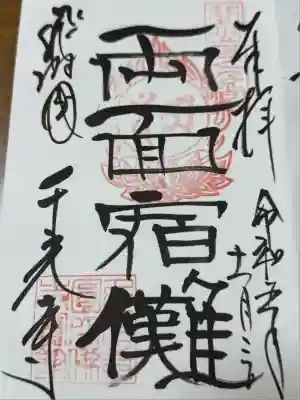 奉拝
令和五年
十一月
両面宿儺
飛騨国
千光寺